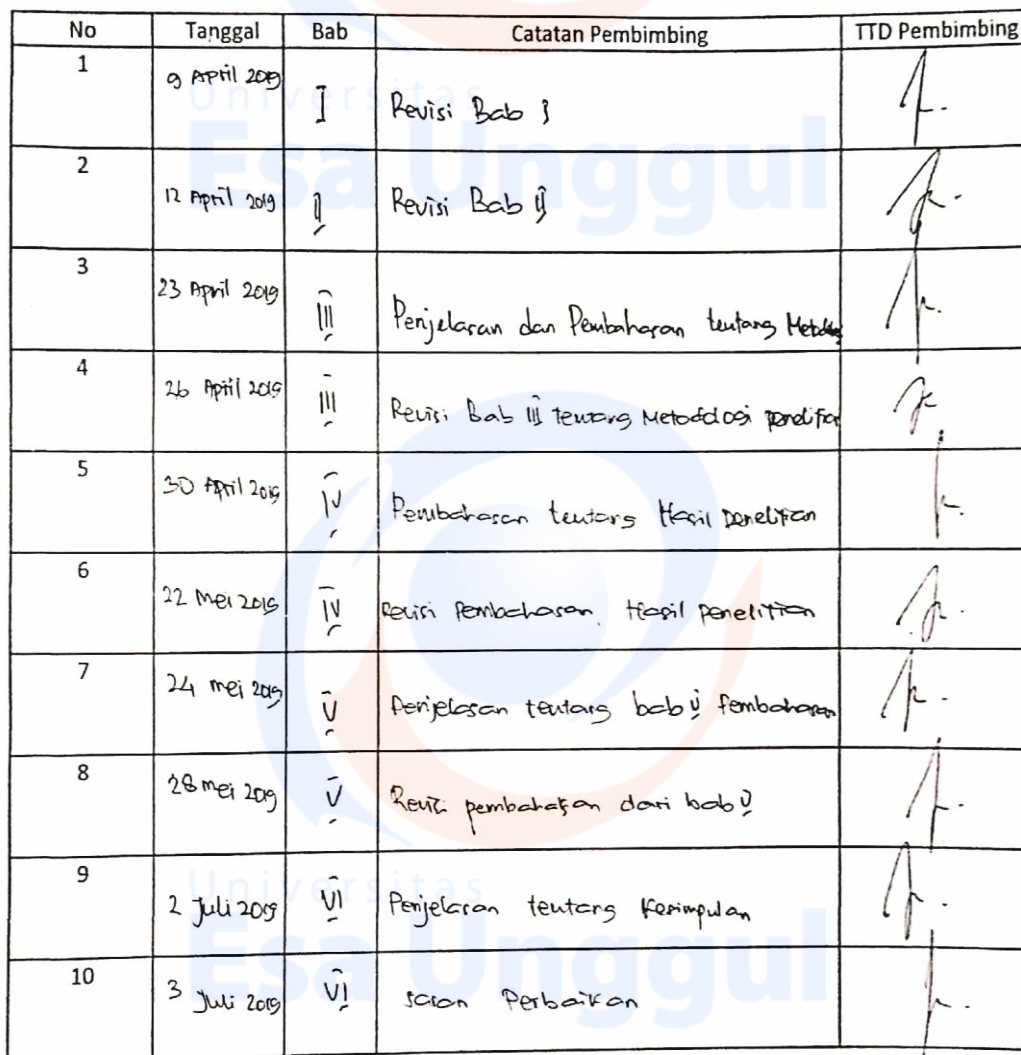 No Tanggal Bab Catatan Pembimbing TTD Pembimbing
1 9 April 2019 I Revisi Bab I
Universitas
Esa Unggul
2 12 April 2019 II Revisi Bab II
3 23 April 2019 III Penjelasan dan Pembahasan tentang
4 26 April 2019 III Revisi Bab III tentang Metodologi penelitian
5 30 April 2019 IV Pembahasan tentang Hasil penelitian
6 22 Mei 2019 IV Revisi Pembahasan Hasil penelitian
7 24 mei 2019 V Penjelasan tentang bab V Pembahasan
8 28 mei 2019 V Revisi pembahasan dari bab V
9 2 Juli 2019 VI Penjelasan tentang Kesimpulan
Universitas
Esa Unggul
10 3 Juli 2019 VI saran Perbaikan